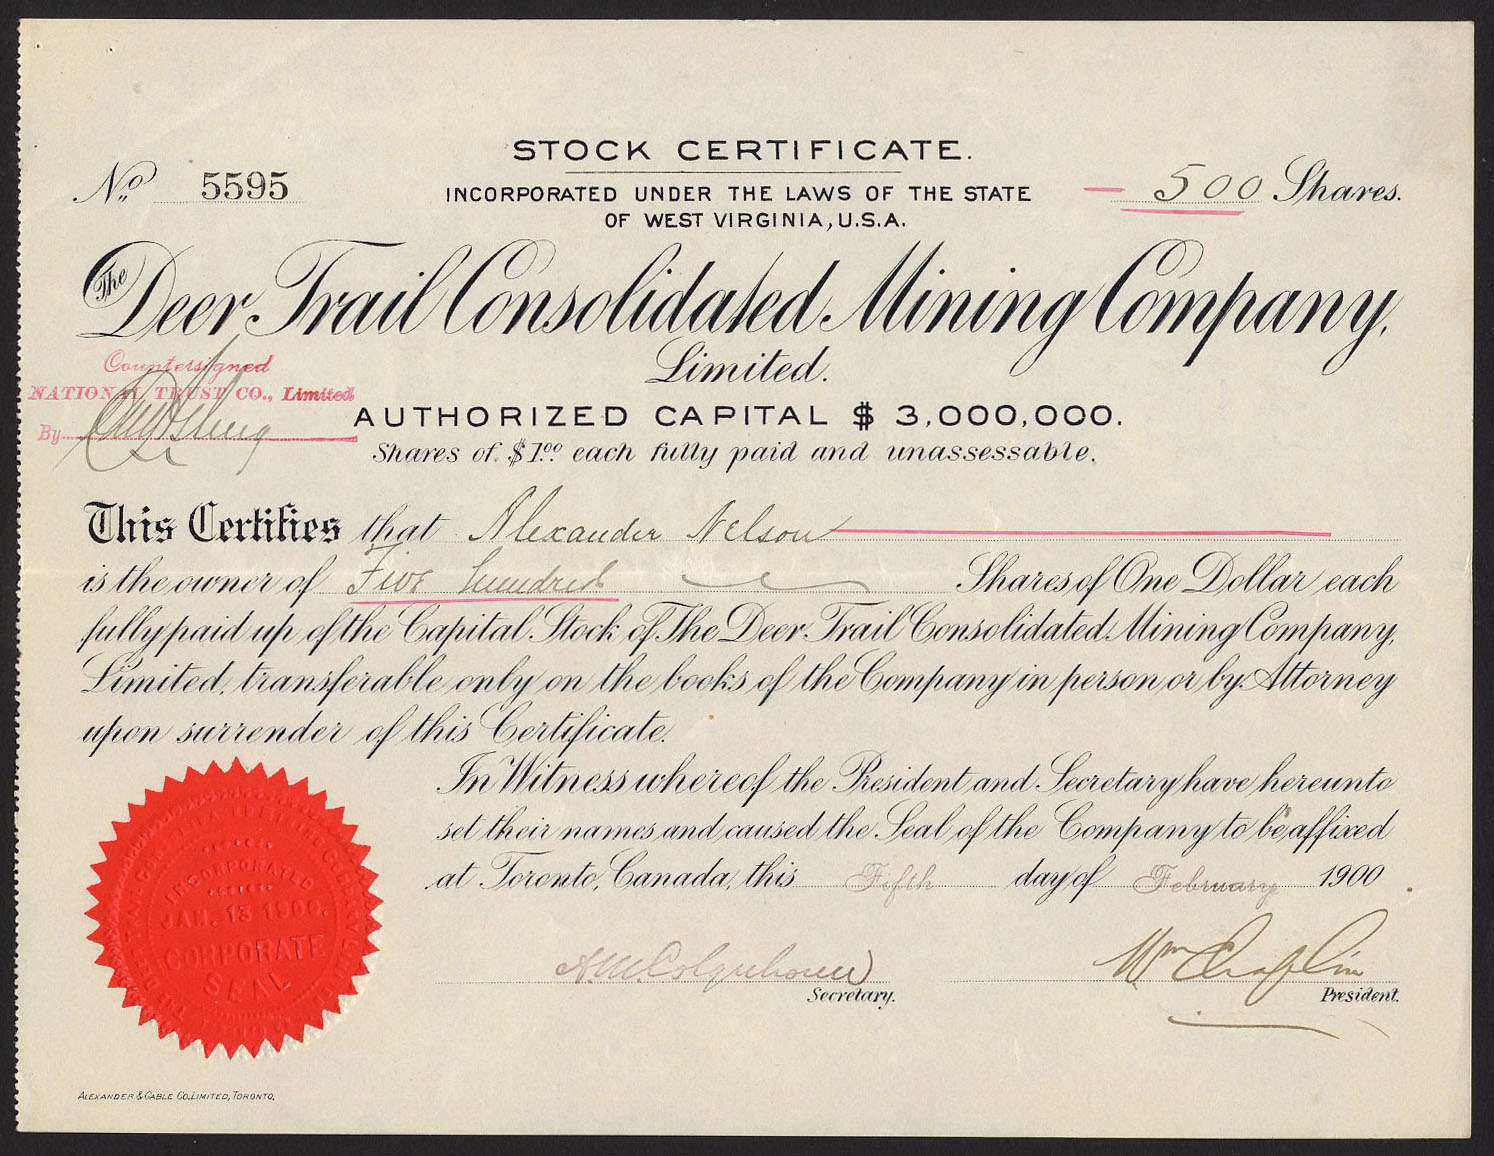 STOCK CERTIFICATE.
No. 5595
INCORPORATED UNDER THE LAWS OF THE STATE
OF WEST VIRGINIA, U.S.A.
500 Shares.
The Deer Trail Consolidated Mining Company,
Limited.
Countersigned
NATIONAL TRUST CO., Limited
By
AUTHORIZED CAPITAL $ 3,000,000.
Shares of $1.00 each fully paid and unassessable.
This Certifies that Alexander Nelson
is the owner of Five hundred Shares of One Dollar each
fully paid up of the Capital Stock of The Deer Trail Consolidated Mining Company,
Limited, transferable only on the books of the Company in person or by Attorney
upon surrender of this Certificate.
In Witness whereof the President and Secretary have hereunto
set their names and caused the Seal of the Company to be affixed
at Toronto, Canada, this Fifth day of February 1900
INCORPORATED
JAN. 13 1900.
CORPORATE
SEAL
A.M. Colquhoun
Secretary.
Wm Chaplin
President.
ALEXANDER & CABLE CO. LIMITED, TORONTO.